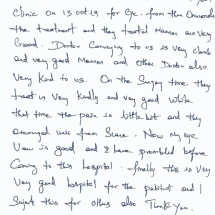 Clinic on 13 oct 19 for Eye. from then onwards
the treatment and they treated Manner are very
Good. Doctor Conveying to us is very clearly
and very good Manner and other Doctor also
Very kind to us. On the Surgery time they
treat is very kindly and very good while
that time the pain is little bit and they
arranged user from Scare. Now my eye
View is good and I have prombled before
Coming to this hospital. finally this is very
Very good hospital for the patient and I
Sujest this for others also Thank you.